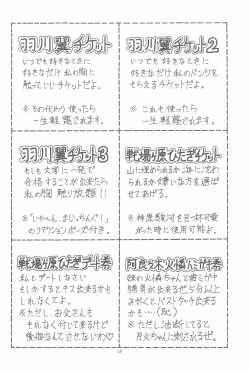 羽川翼チケット
いつでも好きなときに
好きなだけ私の胸に
触っていいチケットだよ。
※その代わり使ったら
一生軽蔑されます。
羽川翼チケット2
いつでも好きなときに
好きなだけ私のパンツを
もらえるチケットだよ。
※これも使ったら
一生軽蔑されます。
羽川翼チケット3
もしも大学に一発で
合格することが出来たら
私の胸触り放題!!
※「いやん、まいっちんぐ!」
のリアクションポーズ付き。
戦場ヶ原ひたぎチケット
山に埋められるか海に沈め
られるか嫌いな方を選ば
せてあげる。
※神原駿河を目一杯可愛
がった時に使用可能よ。
戦場ヶ原ひたぎデート券
私とデートしなさい
もしかするとキスが出来るかも
しれなくてよ。
※ただし、お父さんも
もれなく付いて来るけど
後悔なんてさせないわ♡
阿良々木火憐にボキ券
妹の火憐ちゃんと闘って
勝負が出来るぜ!
かも…(恥)
※ただし油断してると
月火ちゃんに刺されるぜ。